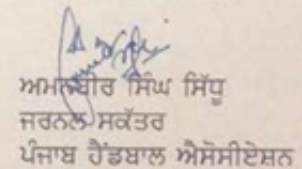 ਅਮਨਬੀਰ ਸਿੰਘ ਸਿੱਧੂ
ਜਰਨਲ ਸਕੱਤਰ
ਪੰਜਾਬ ਹੈਂਡਬਾਲ ਐਸੋਸੀਏਸ਼ਨ